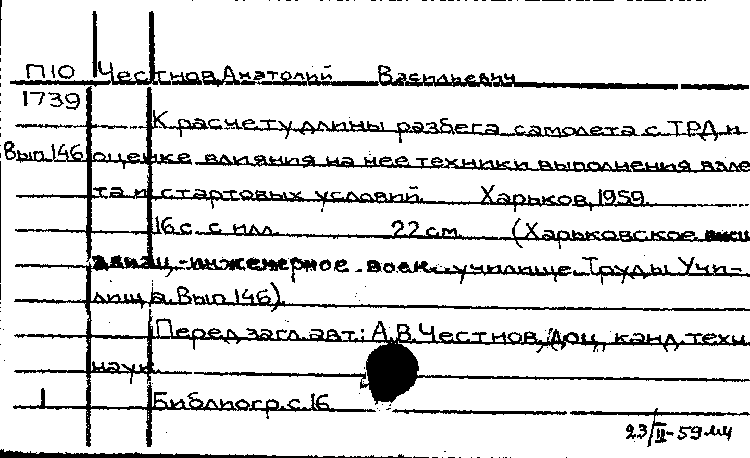 П10 Честнов, Анатолий Васильевич
1739
К расчету длины разбега самолета с ТРД и
Вып.146 оценке влияния на нее техники выполнения взле
та и стартовых условий. Харьков, 1959.
16 с. с илл. 22 см. (Харьковское высш
авиац.-инженерное воен. училище. Труды Учи-
лища. Вып. 146).
Перед загл. авт.: А.В. Честнов, доц. канд. техн.
наук.
1 Библиогр. с. 16
23/II-59 мч